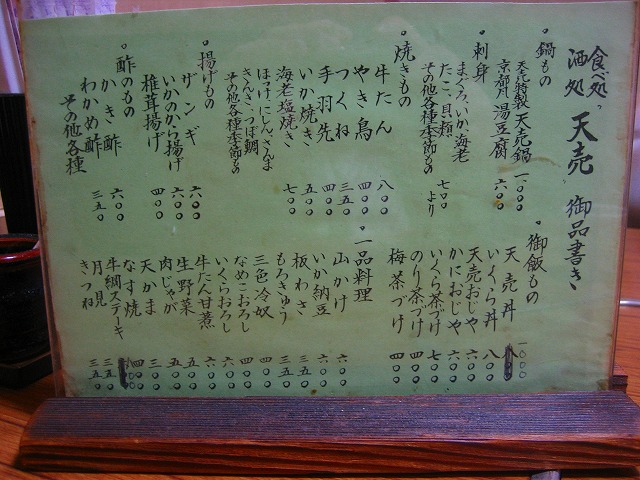 食べ処
酒処
天売
御品書き
鍋もの
天売特製 天売鍋 一〇〇〇
京都风 湯豆腐 六〇〇
刺身
まぐろ、いか、海老
たこ、貝類、
その他各種季節もの 七〇〇より
焼きもの
牛たん 八〇〇
やき鳥 四〇〇
つくね 三五〇
手羽先 四〇〇
いか焼き 五〇〇
海老塩焼き 七〇〇
ほっけ、にしん、さんま
きんき、つぼ鯛
その他各種季節もの
揚げもの
ザンギ 六〇〇
いかのから揚げ 六〇〇
椎茸揚げ 四〇〇
酢のもの
かき酢 六〇〇
わかめ酢 三五〇
その他各種
御飯もの
天売丼 一〇〇〇
いくら丼 八〇〇
天売おじや 六〇〇
かにおじや 六〇〇
いくら茶づけ 七〇〇
のり茶づけ 四〇〇
梅茶づけ 四〇〇
一品料理
山かけ 六〇〇
いか納豆 六〇〇
板わさ 三五〇
もろきゅう 三五〇
三色冷奴 四〇〇
なめこおろし 四〇〇
いくらおろし 六〇〇
牛たん甘煮 六〇〇
生野菜 五〇〇
肉じゃが 五〇〇
天かま 三〇〇
なす焼 四〇〇
牛網ステーキ
月見 三五〇
きつね 三五〇